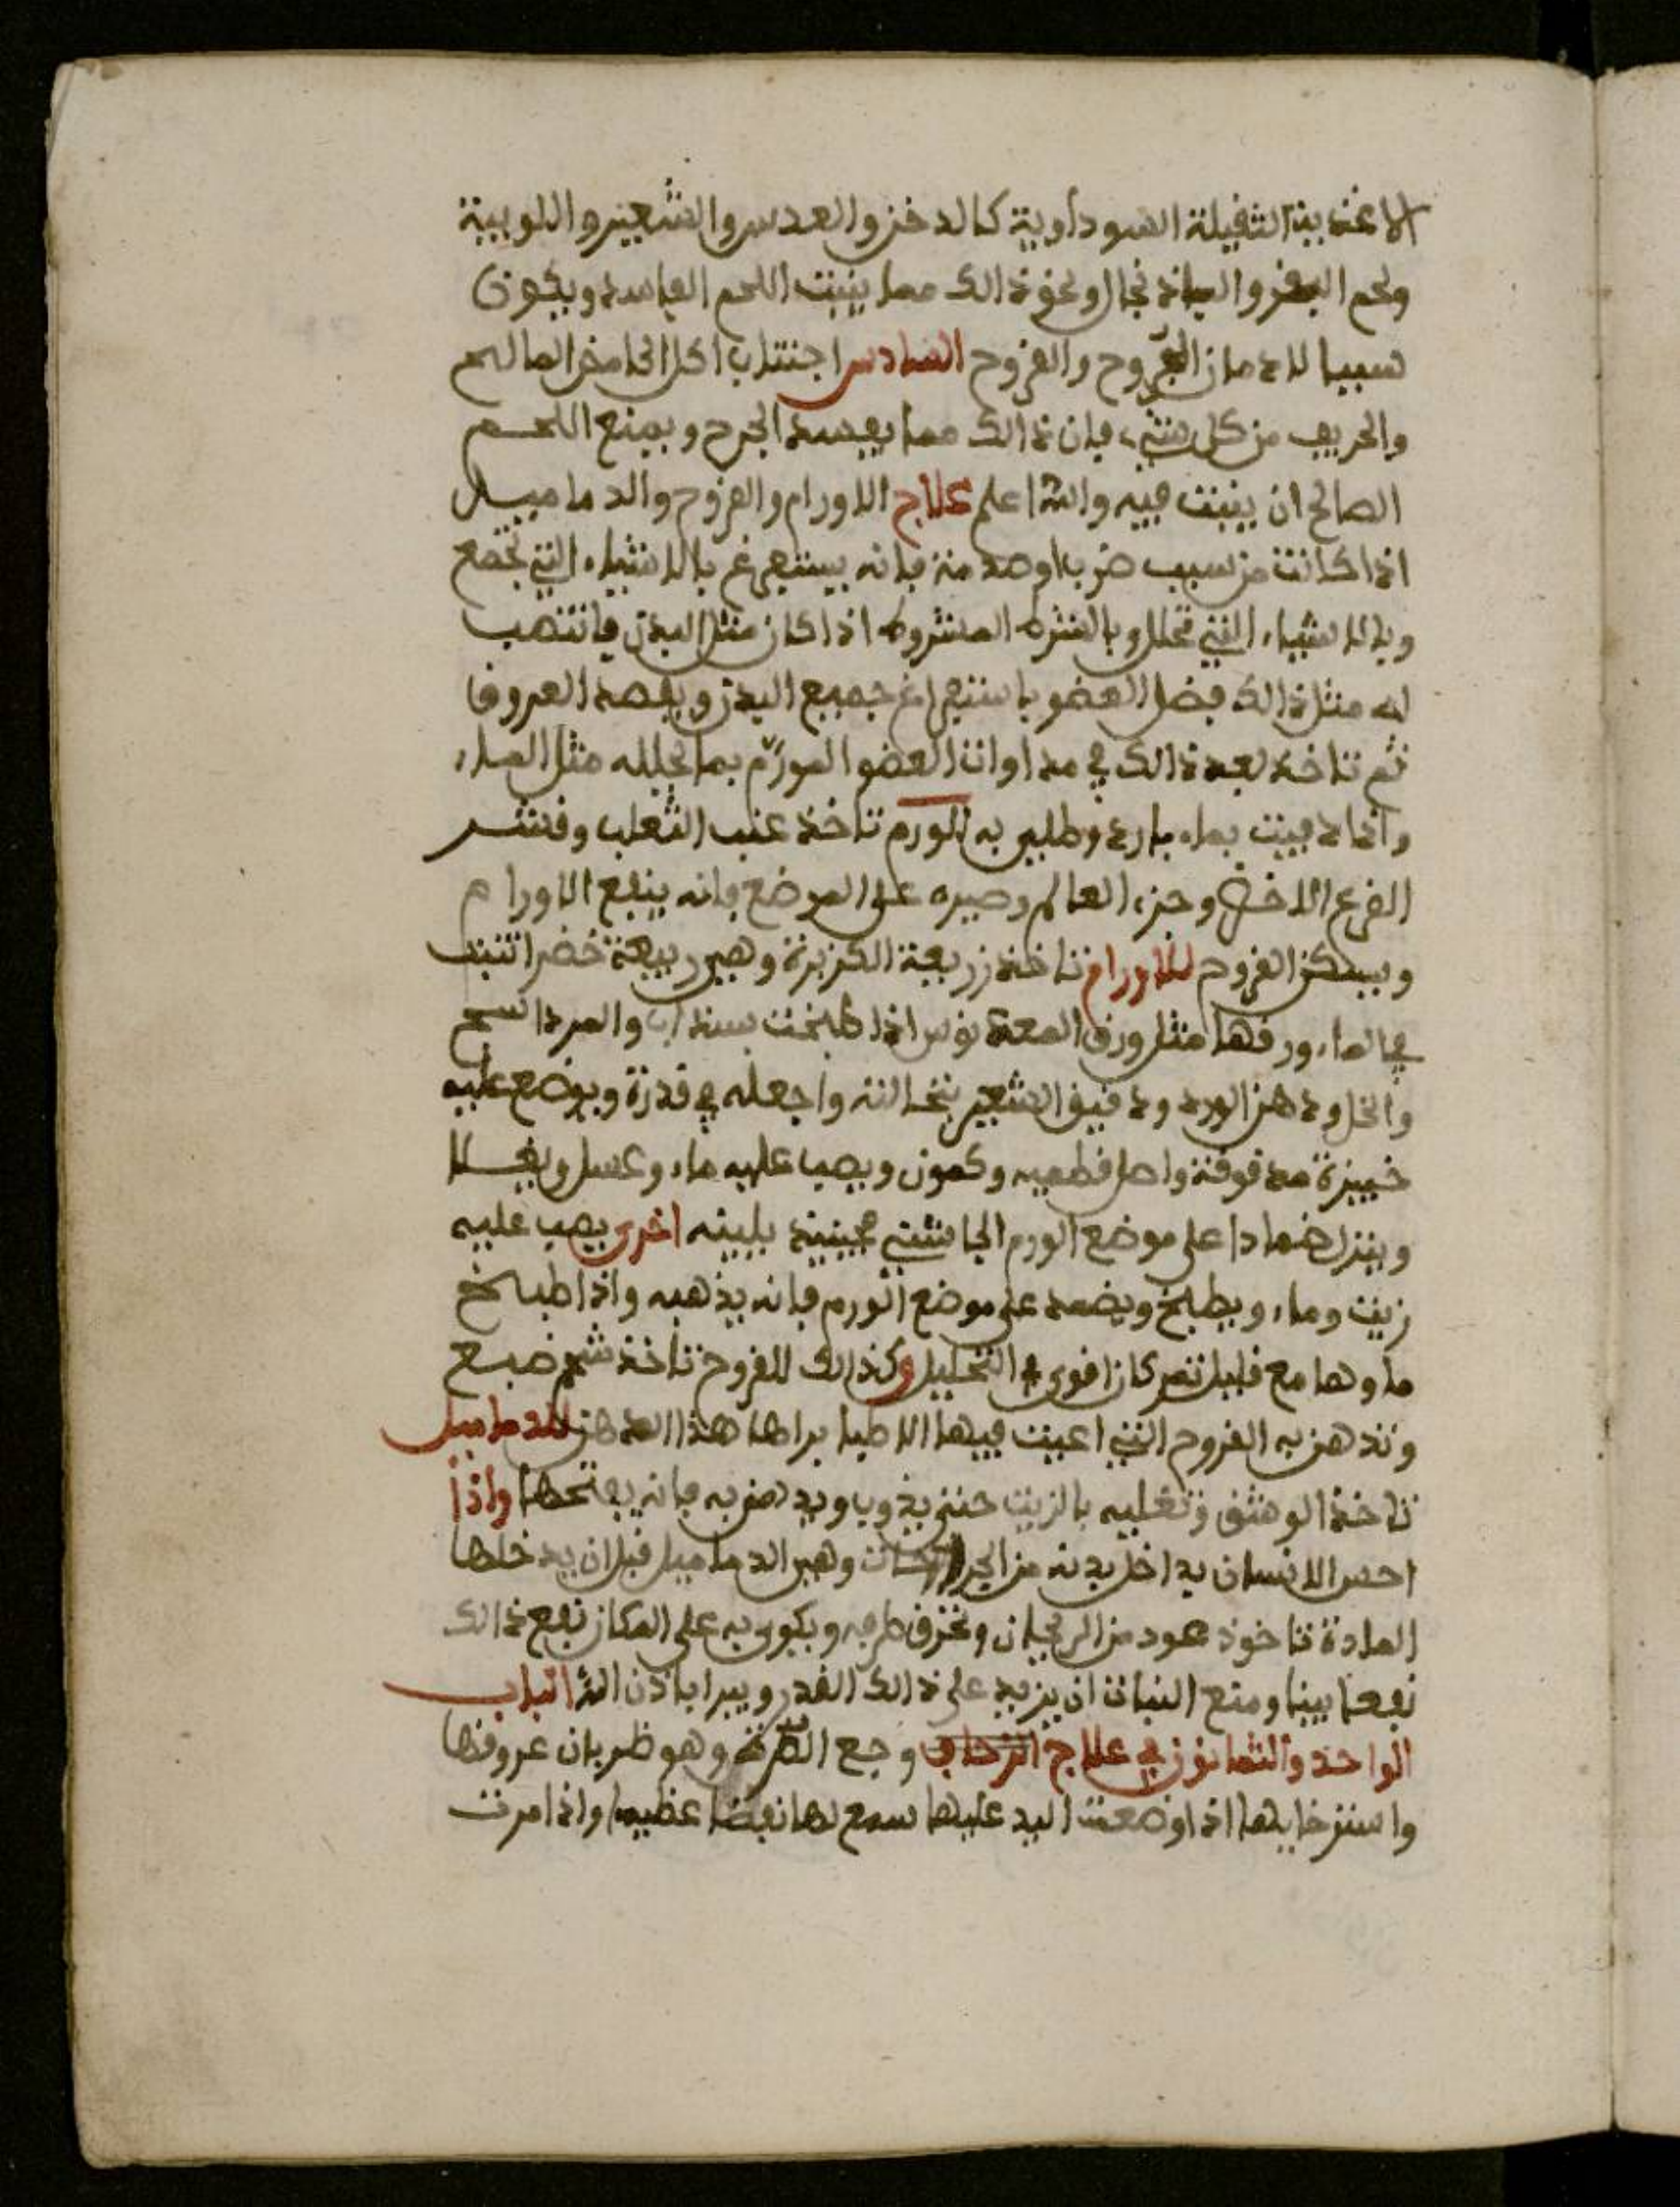 الاغذية الثقيلة السوداوية كالدخن والعدس والشعير واللوبية
ولحم البقر والباذنجال ونحو ذالك مما ينبت اللحم الفاسد ويكون
سببا لادمان الجروح والقروح السادس اجتناب اكل الحامض المالح
والحريف من كل شيء فان ذالك مما يفسد الجرح ويمنع اللحم
الصالح ان ينبت فيه والله اعلم علاج الاورام والقروح والدماميل
اذا كانت من سبب ضربا وصدمة فانه يستفرغ بالاشياء التي تجمع
وبالاشياء التي تحلل وبالشرط المشروط اذا كان مثل البدن فانتصب
له مثل ذالك فضل العضو باستفراغ جميع البدن وبفصد العروق
ثم تاخذ بعد ذالك في مداوات العضو المورّم بما يحلله مثل الماء
واذا دميت بماء بارد وطلي به الورم تاخذ عنب الثعلب وقشر
القرع الاخضر وجزء العالم وصيره على الموضع فانه ينفع الاورام
ويسكن القروح للاورام تاخذ زريعة الكزبرة وهي ربيعة خضرا تنبت
في الماء ورقها مثل ورق المعدنوس اذا طبخت بسذاب والمرداسج
والخل ودهن الورد ودقيق الشعير بنخالته واجعله في قدرة ويوضع عليه
خبيزة مدقوقة واصل قطميه وكمون ويصب عليه ماء وعسل ويغلا
وينزل ضمادا على موضع الورم الجاشئ فيبينه بلينه اخرى يصب عليه
زيت وماء ويطبخ ويضمد على موضع الورم فانه يذهبه واذا طبخ
ماوها مع قليل تمر كان اقوى التحليل وكذالك للقروح تاخذ شحم ضبع
وتدهن به القروح التي اعيت فيها الاطبا براها هذا الدهن للدماميل
تاخذ الوشق وتغليه بالزيت حتى يذوب ويدهن به فانه يفتحها واذا
احس الانسان بداخل بدنه من الجراحات وهي الدماميل قبل ان يدخلها
المادة تاخوذ عود من الريحان وتحرق طرفه ويكوى به على المكان نفع ذالك
نفعا بينا ومنع النبات ان يزيد على ذالك القدر ويبرا باذن الله الباب
الواحد والثمانون في علاج وجع الطرقة وهو ظربان عروقها
واسترخايها اذا وضعت اليد عليها سمع لها نفضا عظيما واذا مرت